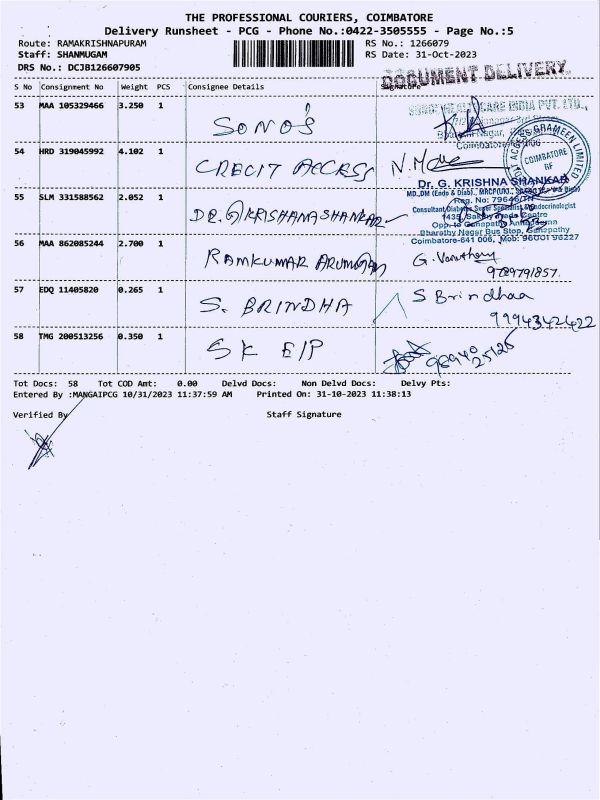 THE PROFESSIONAL COURIERS, COIMBATORE
Delivery Runsheet - PCG - Phone No.:0422-3505555 - Page No.:5
Route: RAMAKRISHNAPURAM
RS No.: 1266079
Staff: SHANMUGAM
RS Date: 31-Oct-2023
DRS No.: DCJB126607905
DOCUMENT DELIVERY
S No Consignment No Weight PCS Consignee Details Signature
53 MAA 105329466 3.250 1 SONO'S
CARE INDIA PVT. LTD.,
54 HRD 319045992 4.102 1 CREDIT ACCESS
GRAMEEN LIMITED
COIMBATORE
RF
Dr. G. KRISHNA SHANKAR
55 SLM 331588562 2.052 1 DR. G KRISHANA SHANKAR
Reg. No: 79646/TN
Bharathy Nagar Bus Stop, Ganapathy
Coimbatore-641 006, Mob: 96001 96227
56 MAA 862085244 2.700 1 RAMKUMAR ARUMUGAM
9789791857
57 EDQ 11405820 0.265 1 S. BRINDHA S Brindhaa
9994342422
58 TMG 200513256 0.350 1 SK E/P
98940 25126
Tot Docs: 58 Tot COD Amt: 0.00 Delvd Docs: Non Delvd Docs: Delvy Pts:
Entered By :MANGAIPCG 10/31/2023 11:37:59 AM Printed On: 31-10-2023 11:38:13
Verified By Staff Signature